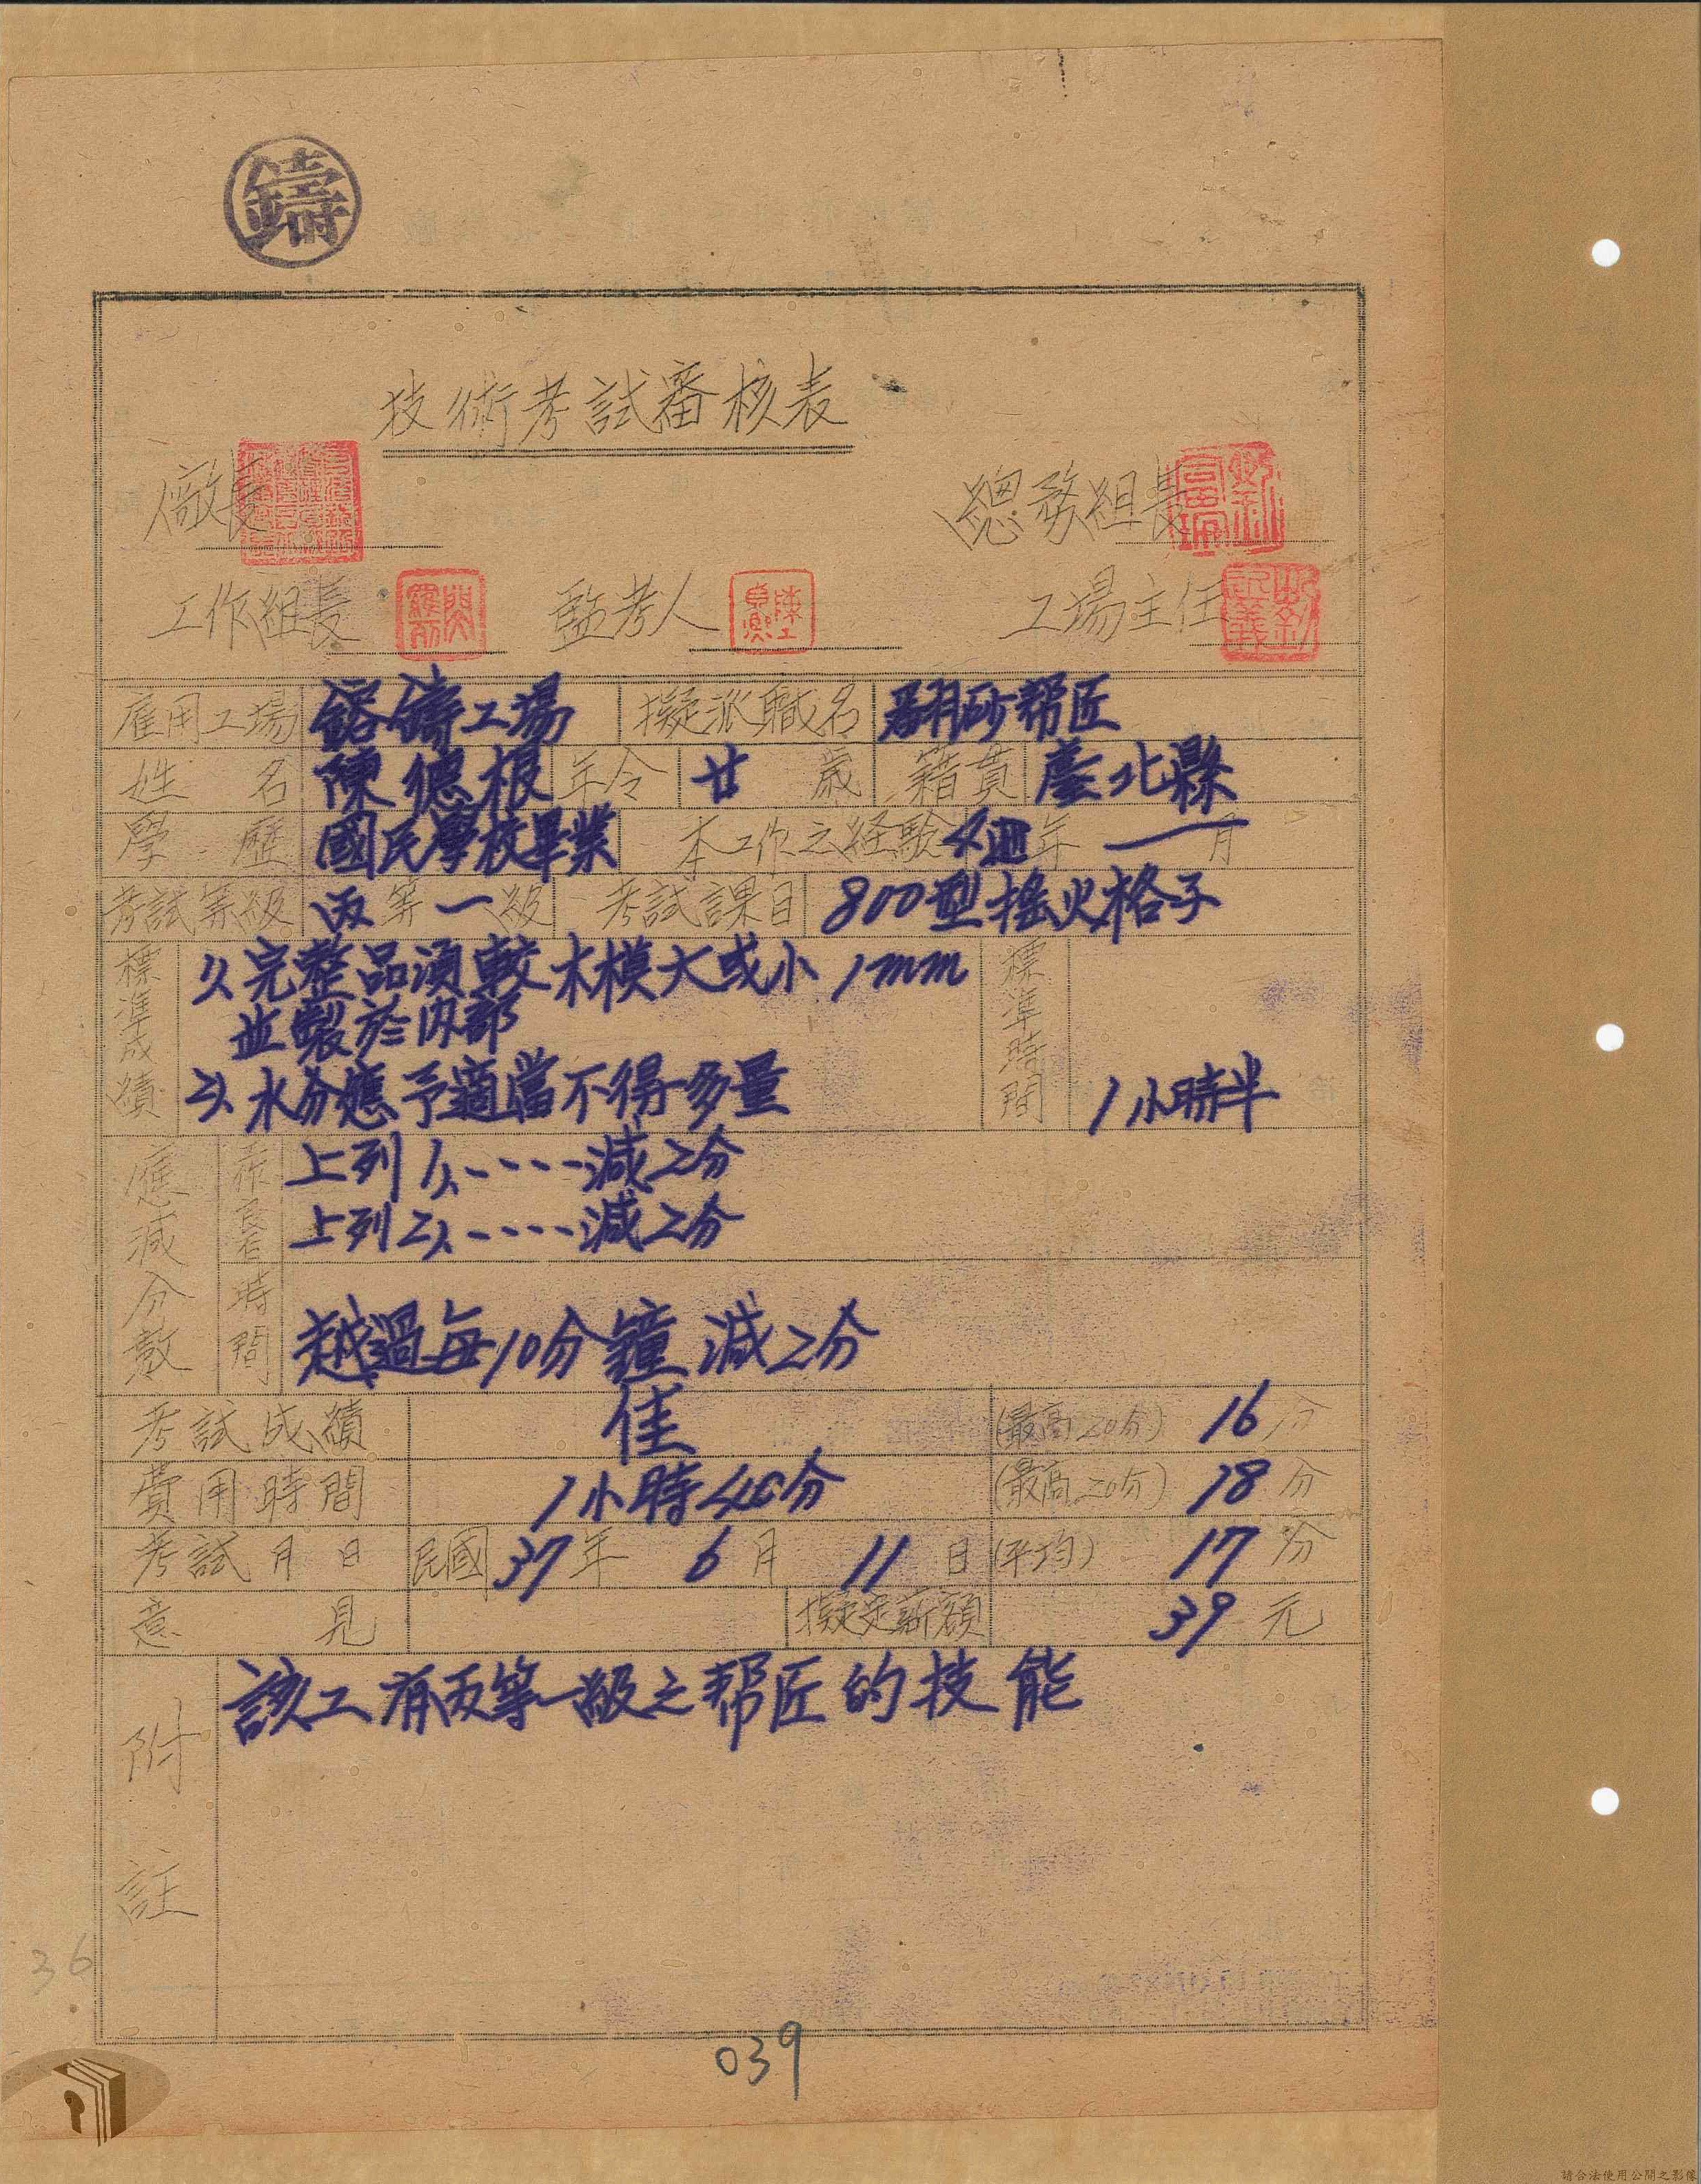 鑄
技術考試審核表
廠長 總務組長
工作組長 監考人 工場主任
雇用工場 鎔鑄工場 擬派職名 翻砂幇匠
姓名 陳德根 年令 廿歲 籍貫 臺北縣
學歷 國民學校畢業 本工作之経驗 4週年 一月
考試等級 丙等一級 考試課目 800型搖火格子
標準成績 1、完整品須較木模大或小1mm
並製於內部
2、水分應予適當不得多量
標準時間 1小時半
應減分數
上列1、-----減2分
上列2、-----減2分
時間 越過每10分鐘減2分
考試成績 佳 (最高20分) 16分
費用時間 1小時40分 (最高20分) 18分
考試月日 民國37年6月11日 (平均) 17分
意見 擬定薪額 39元
附註 該工有丙等一級之幇匠的技能
36
039
請合法使用公開之影像